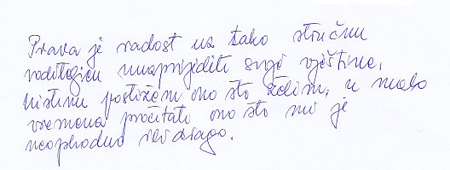 Prava je radost uz tako stručnu
voditeljicu unaprijediti svoje vještine,
uistinu postižem ono što želim, u malo
vremena pročitati ono što mi je
neophodno ili drago.